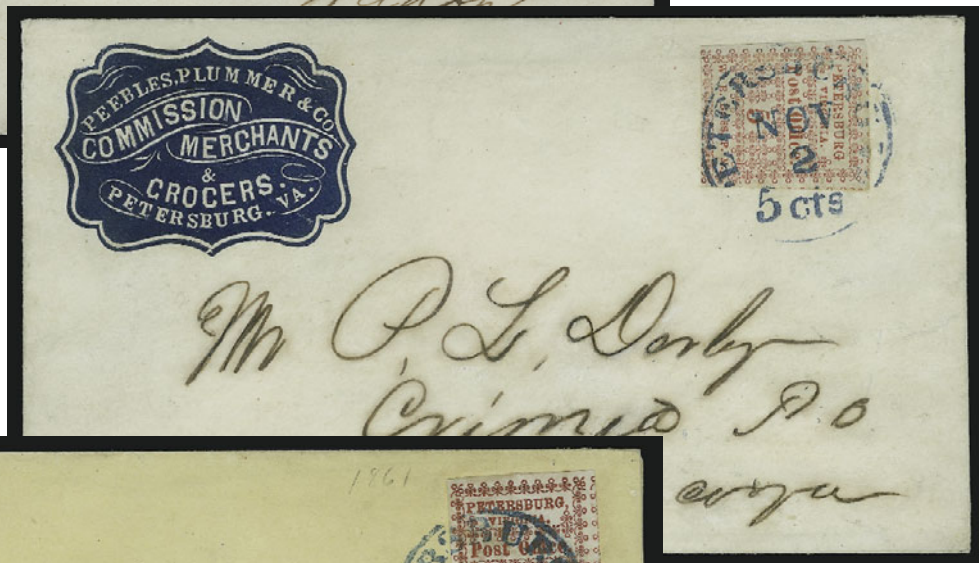 PEEBLES, PLUMMER & CO.
COMMISSION
MERCHANTS
&
GROCERS.
PETERSBURG. VA.
PETERSBURG
VIRGINIA
Post Office
NOV
2
5 cts
Mr P. L. Derby
Crimea P. O
1861
PETERSBURG,
VIRGINIA.
Post Office